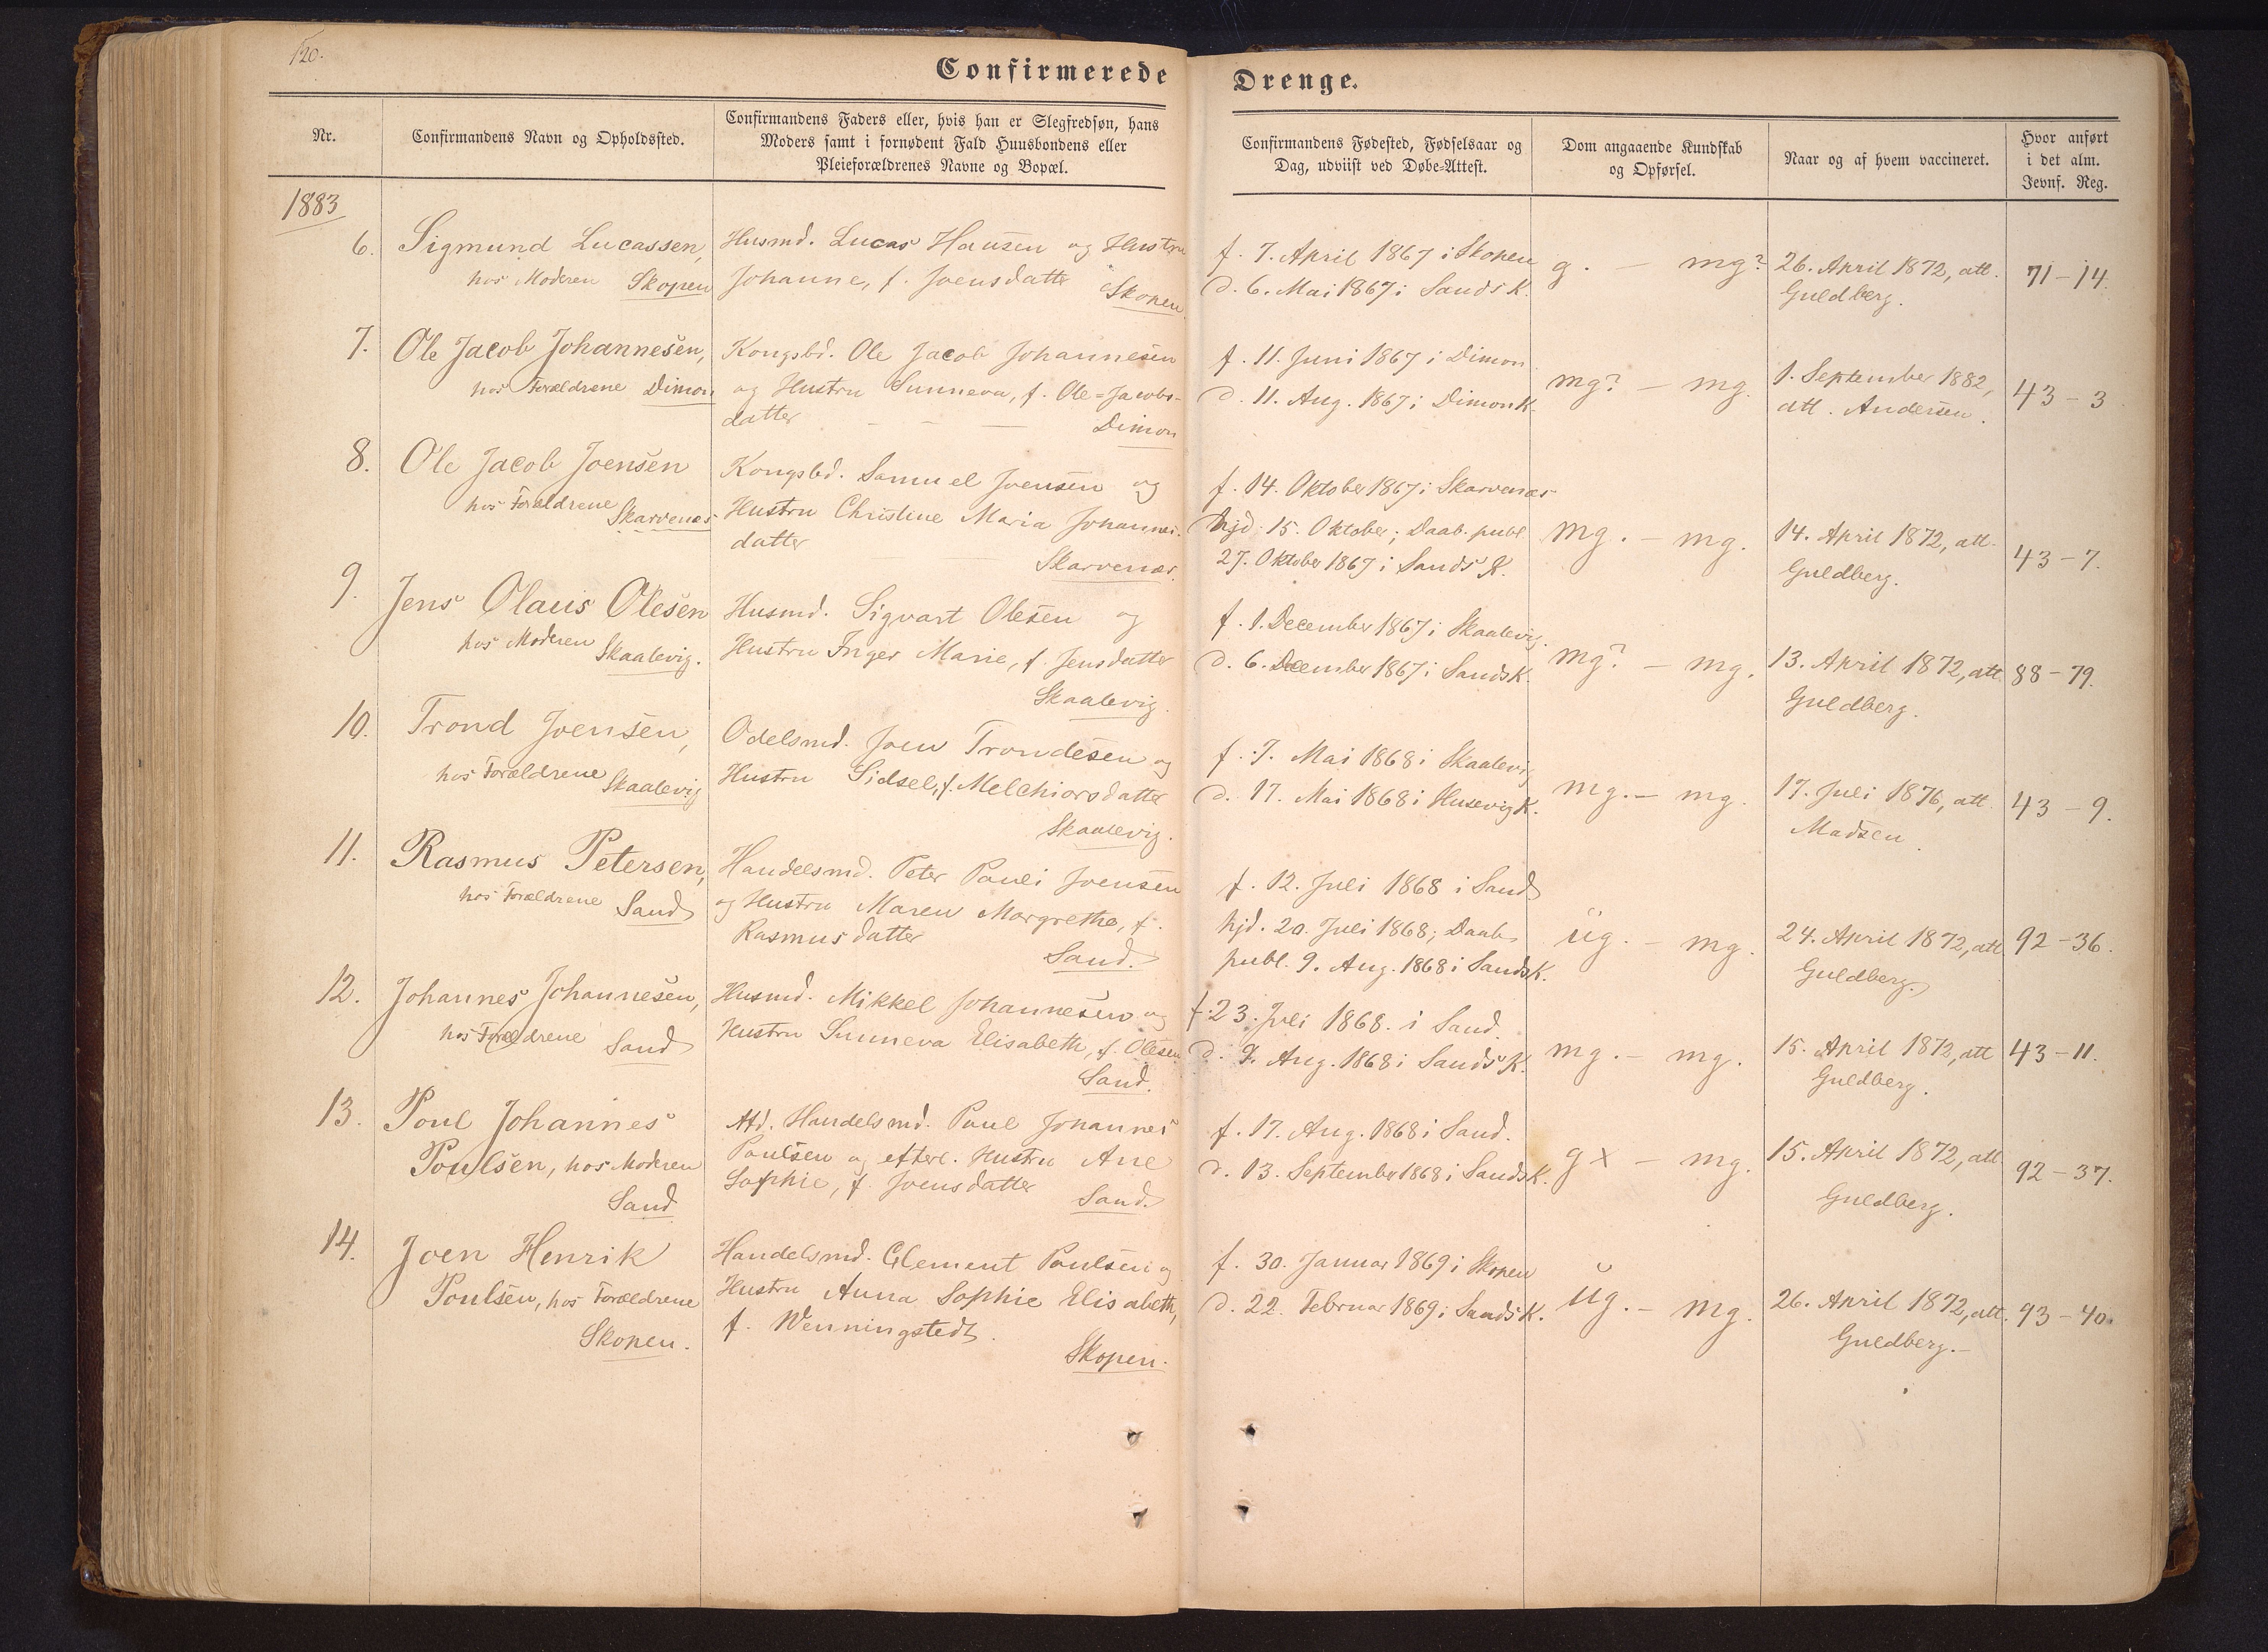 120.
Confirmerede Drenge.
Nr.
Confirmandens Navn og Opholdssted.
Confirmandens Faders eller, hvis han er Slegfredsøn, hans
Moders samt i fornødent Fald Huusbondens eller
Pleieforældrenes Navne og Bopæl.
Confirmandens Fødested, Fødselsaar og
Dag, udviist ved Døbe-Attest.
Dom angaaende Kundskab
og Opførsel.
Naar og af hvem vaccineret.
Hvor anført
i det alm.
Jevnf. Reg.
1883
6.
Sigmund Lucassen,
hos Moderen Skopen
Husmd. Lucas Hansen og Hustru
Johanne, f. Joensdatter
Skopen.
f. 7. April 1867 i Skopen
d. 6. Mai 1867 i Sands K.
g. — mg?
26. April 1872, att.
Guldberg.
71-14.
7.
Ole Jacob Johannesen,
hos Forældrene Dimon
Kongsbd. Ole Jacob Johannesen
og Hustru Sunneva, f. Ole=Jacobs-
datter — — — Dimon
f. 11. Juni 1867 i Dimon
d. 11. Aug. 1867 i Dimon K.
mg? — mg.
1. September 1882,
att. Andersen.
43-3
8.
Ole Jacob Joensen
hos Forældrene Skarvenæs
Kongsbd. Samuel Joensen og
Hustru Christine Maria Johannes-
datter
Skarvenæs.
f. 14. Oktober 1867 i Skarvenæs
hjd. 15. Oktober; Daab. publ
27. Oktober 1867 i Sands K.
mg. — mg.
14. April 1872, att.
Guldberg.
43-7.
9.
Jens Olaus Olesen
hos Moderen Skaalevig.
Husmd. Sigvart Olesen og
Hustru Inger Marie, f. Jensdatter
Skaalevig.
f. 1. December 1867 i Skaalevig.
d. 6. December 1867 i Sands K.
mg? — mg.
13. April 1872, att
Guldberg.
88-79.
10.
Trond Joensen,
hos Forældrene Skaalevig
Odelsmd. Joen Trondesen og
Hustru Sidsel, f. Melchiorsdatter
Skaalevig.
f. 7. Mai 1868 i Skaalevig
d. 17. Mai 1868 i Husevig K.
mg. — mg.
17. Juli 1876, att.
Madsen.
43-9.
11.
Rasmus Petersen,
hos Forældrene Sand
Handelsmd. Peter Pauli Joensen
og Hustru Maren Margrethe, f.
Rasmusdatter
Sand.
f. 12. Juli 1868 i Sand
hjd. 20. Juli 1868; Daab
publ. 9. Aug. 1868 i Sands K.
üg. — mg.
24. April 1872, att
Guldberg.
92-36.
12.
Johannes Johannesen,
hos Forældrene Sand
Husmd. Mikkel Johannesen og
Hustru Sunneva Elisabeth, f. Olesen
Sand.
f. 23. Juli 1868. i Sand
d. 9. Aug. 1868 i Sands K.
mg. — mg.
15. April 1872, att
Guldberg.
43-11.
13.
Poul Johannes
Poulsen, hos Moderen
Sand
Afd. Handelsmd. Paul Johannes
Paulsen og efterl. Hustru Ane
Sophie, f. Joensdatter Sand.
f. 17. Aug. 1868 i Sand.
d. 13. September 1868 i Sands K.
g x — mg.
15. April 1872, att
Guldberg.
92-37.
14.
Joen Henrik
Poulsen, hos Forældrene
Skopen.
Handelsmd. Clement Paulsen og
Hustru Anna Sophie Elisabeth,
f. Wenningstedt.
Skopen.
f. 30. Januar 1869 i Skopen
d. 22. Februar 1869 i Sands K.
üg. — mg.
26. April 1872, att.
Guldberg.-
93-40.